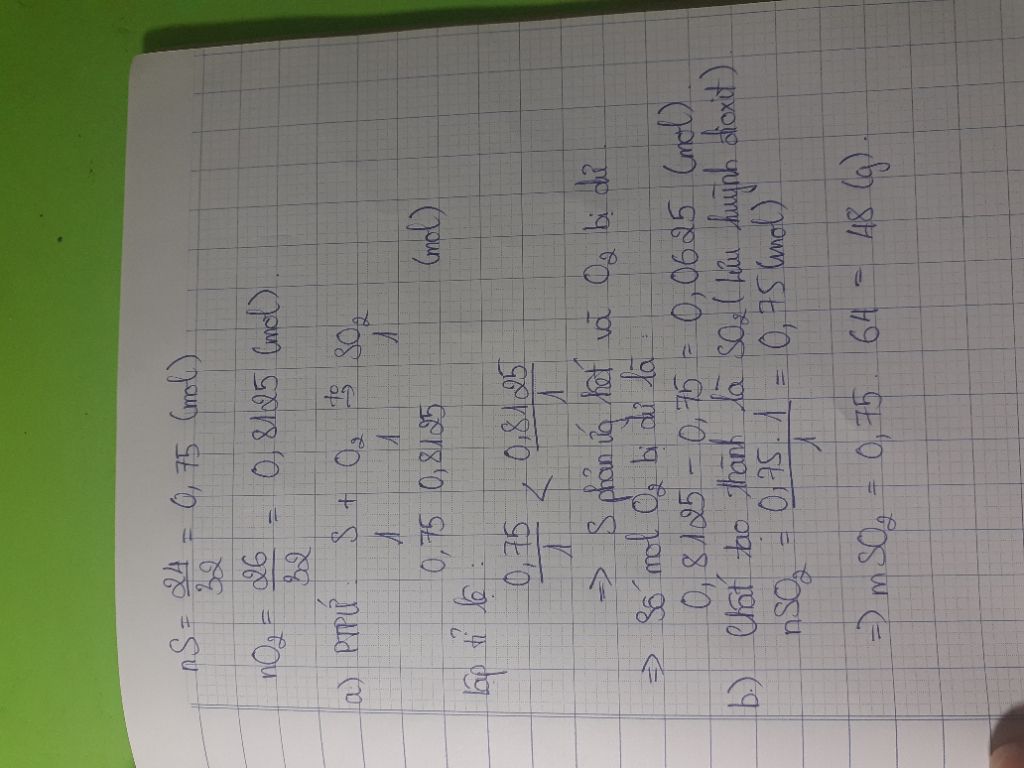 nS = 24/32 = 0,75 (mol)
nO₂ = 26/32 = 0,8125 (mol)
a) PTPƯ: S + O₂ t° → SO₂
1 1 1
0,75 0,8125 (mol)
lập tỉ lệ:
0,75/1 < 0,8125/1
=> S phản ứ hết và O₂ bị dư
=> Số mol O₂ bị dư là:
0,8125 - 0,75 = 0,0625 (mol)
b.) Chất tạo thành là SO₂ (lưu huỳnh đioxit)
nSO₂ = 0,75 . 1/1 = 0,75 (mol)
=> mSO₂ = 0,75 . 64 = 48 (g).